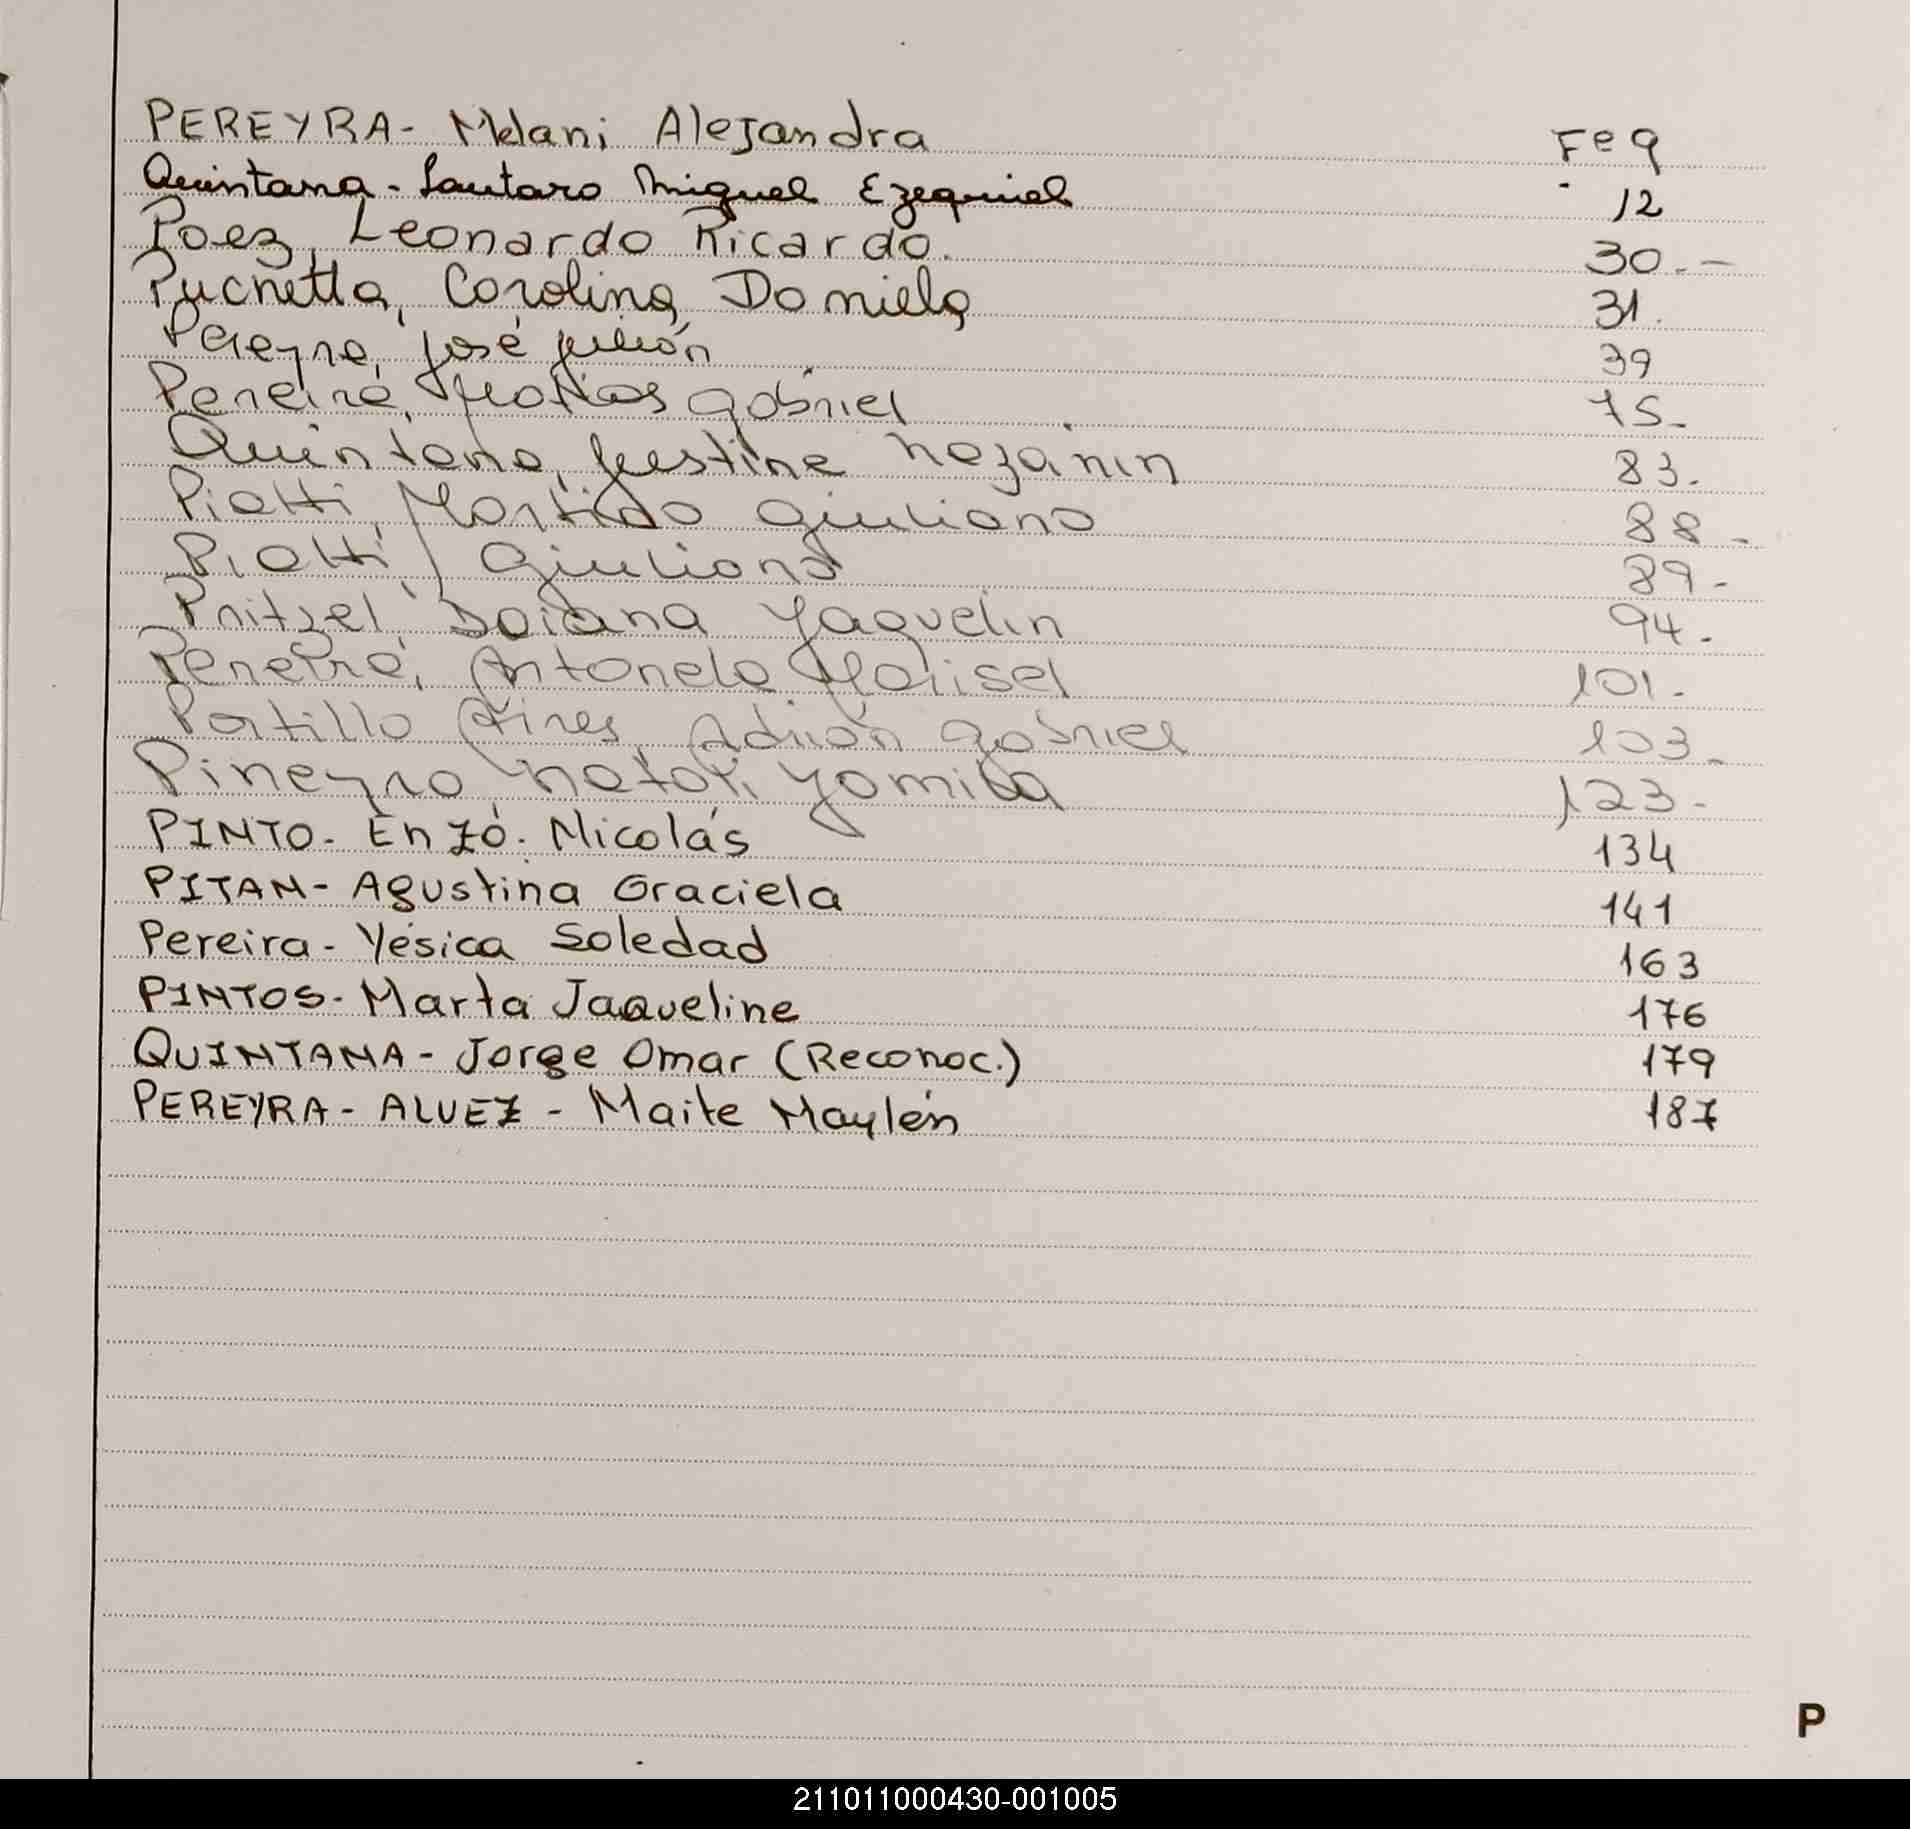 PEREYRA- Melani Alejandra Fe 9
Quintana - Lautaro Miguel Ezequiel 12
Paez, Leonardo Ricardo. 30.-
Puchetta, Carolina Daniela 31.
Pereyra, José Julián 39
Pereira, Matías Gabriel 75.
Quintana, Justina Nazarin 83.
Piatti, Giuliano 88.
Piatti, Giuliana 89.
Pritzel, Daiana Yaquelin 94.
Pereira, Antonela Marisel 101.
Portillo Aires, Adrián Gabriel 103.
Pineyro, Natali Yamila 123.
PINTO- Enzo. Nicolás 134
PITAN- Agustina Graciela 141
Pereira- Yésica Soledad 163
PINTOS- Marta Jaqueline 176
QUINTANA- Jorge Omar (Reconoc.) 179
PEREYRA- ALVEZ - Maite Maylén 187
P
211011000430-001005